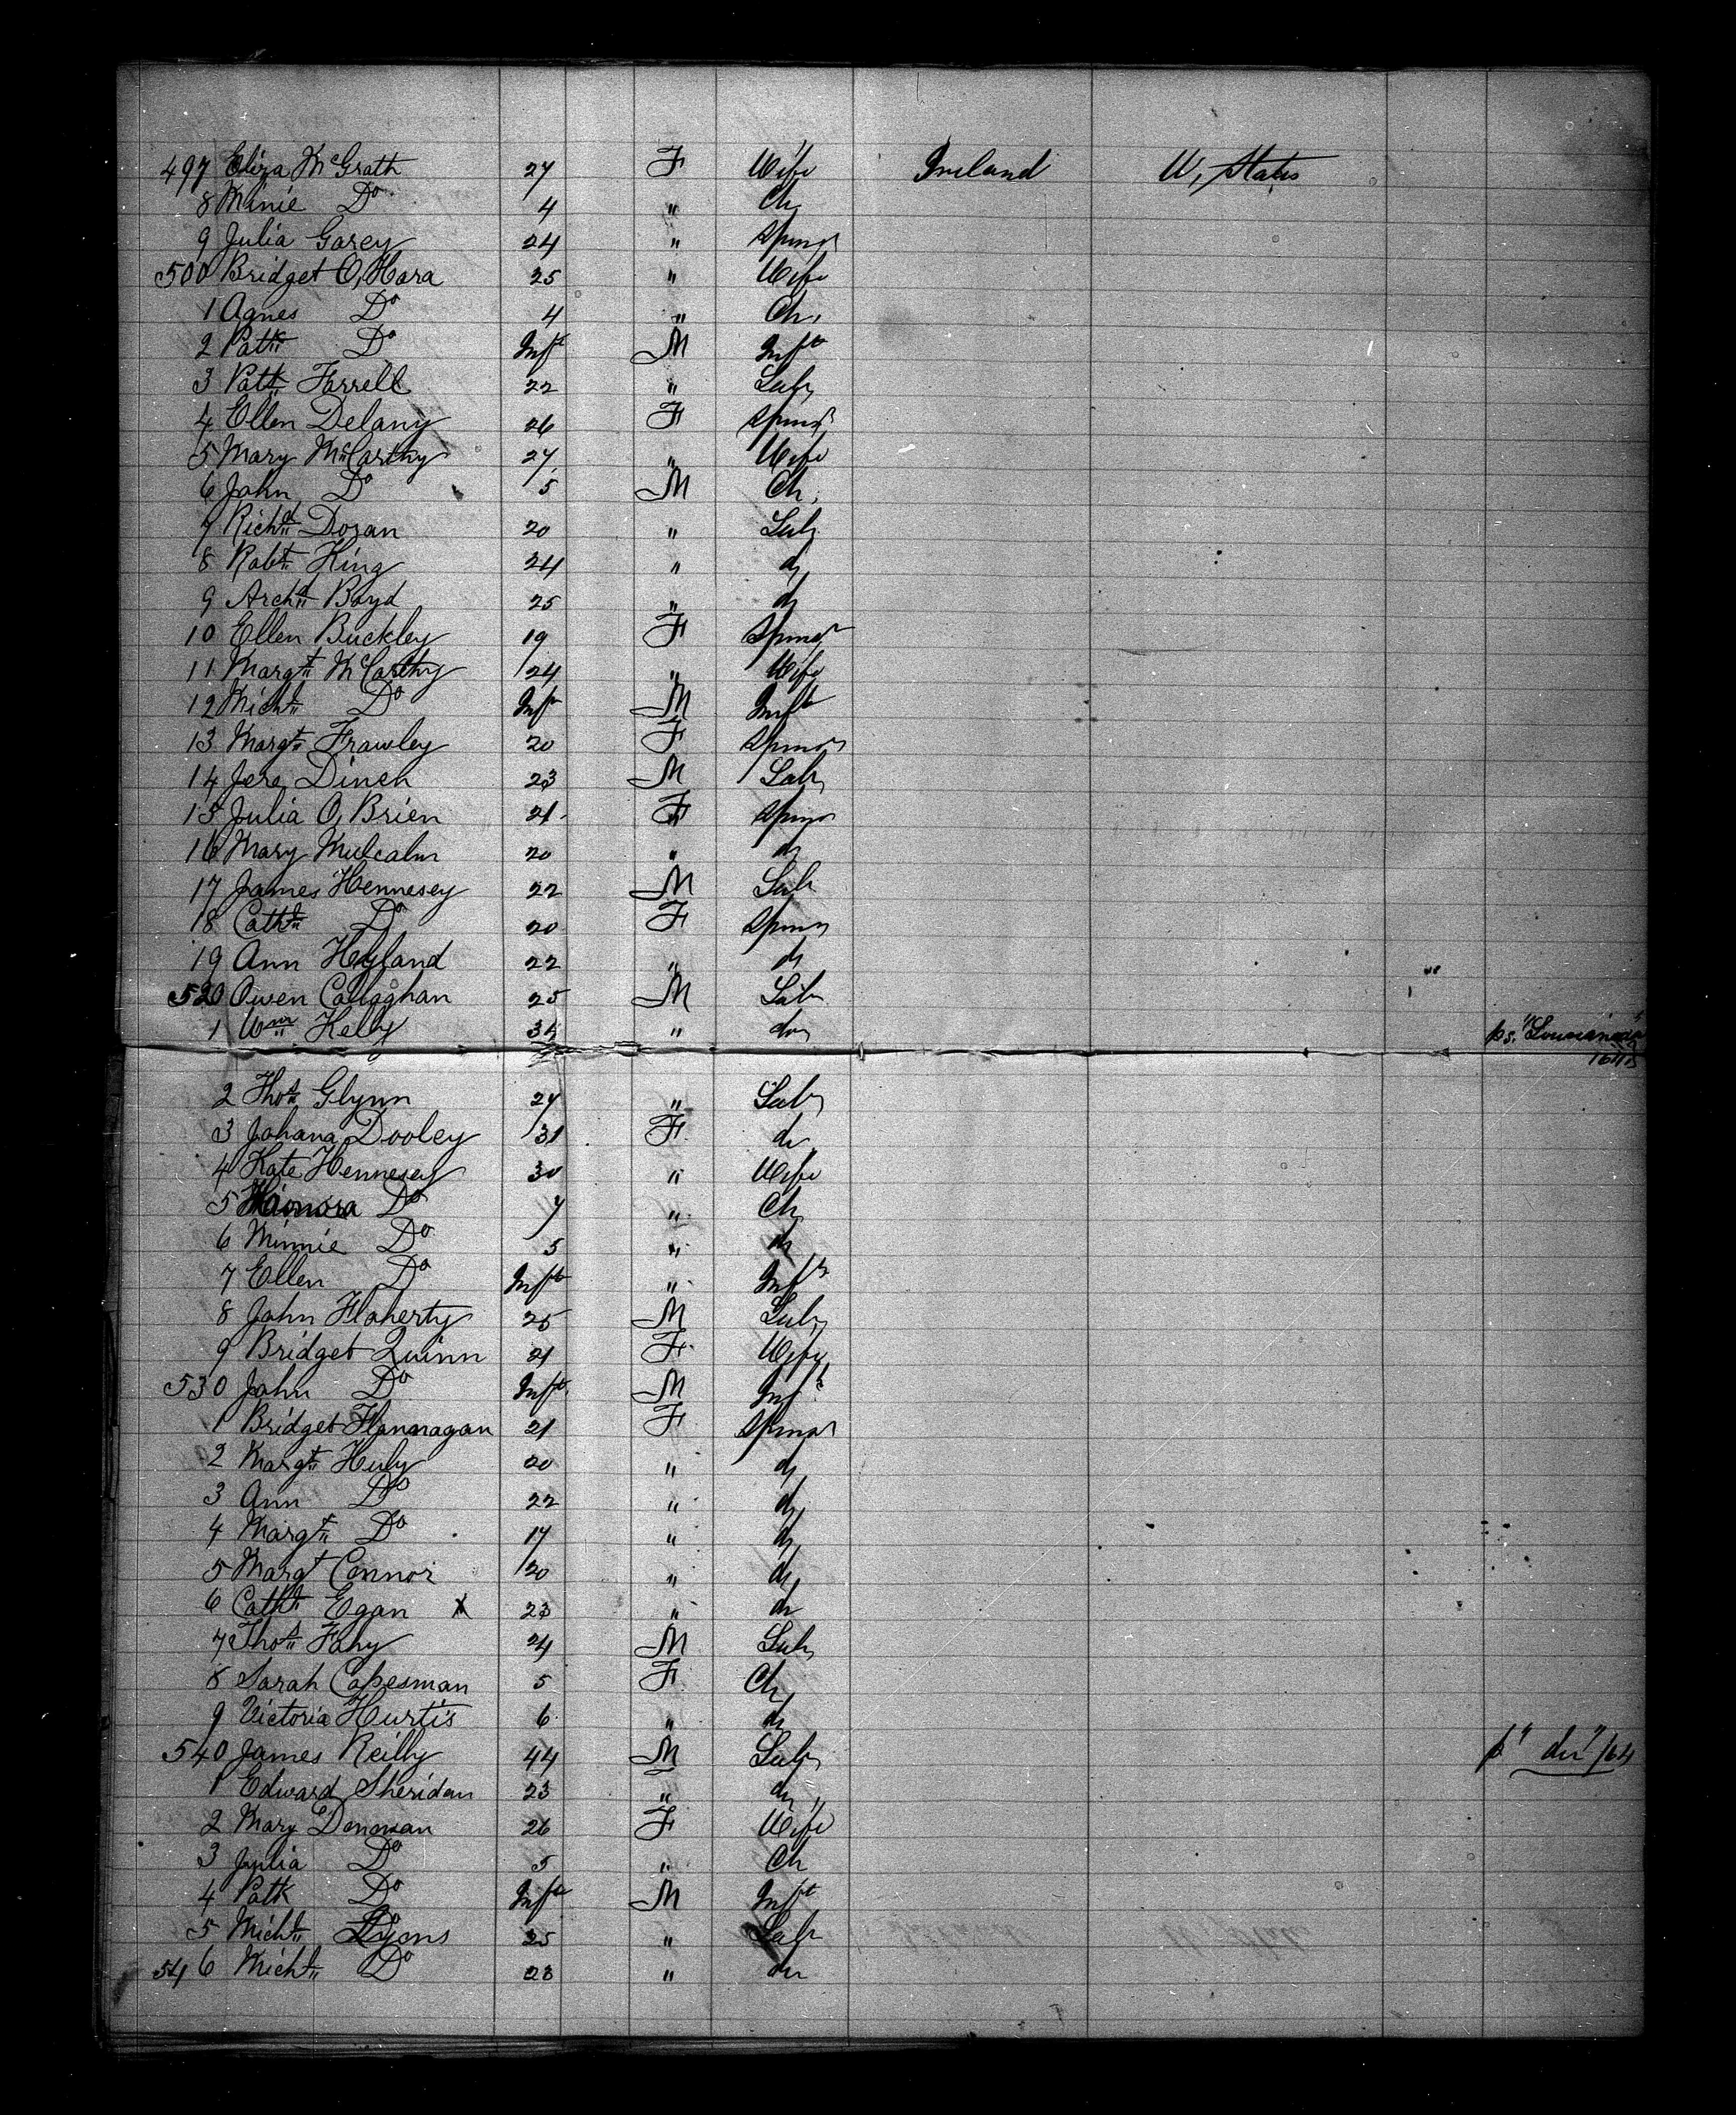 497 Eliza McGrath 27 F Wife Ireland U, States
8 Minie Do 4 " Ch,
9 Julia Garey 24 " Spinsr
500 Bridget O,Hara 25 " Wife
1 Agnes Do 4 " Ch,
2 Patk Do Inft M Inft
3 Patk Farrell 22 " Lab,
4 Ellen Delany 26 F Spinsr
5 Mary McCarthy 27 " Wife
6 John Do 5 M Ch,
7 Richd Doran 20 " Lab,
8 Robt King 24 " do
9 Archd Boyd 25 " do
10 Ellen Buckley 19 F Spinsr
11 Margt McCarthy 24 " Wife
12 Michl Do Inft M Inft
13 Margt Frawley 20 F Spinsr
14 Jere Dineh 23 M Lab,
15 Julia O,Brien 21 F Spinsr
16 Mary Mulcalm 20 " do
17 James Hennesey 22 M Lab
18 Cathe Do 20 F Spinsr
19 Ann Heyland 22 " do
520 Owen Callaghan 25 M Lab
1 Wm Kelly 31 " do ps. "Louisiana"
2 Thos Glynn 27 " Lab,
3 Johana Dooley 31 F do
4 Kate Hennesey 30 " Wife
5 Honora Do 7 " Ch,
6 Minnie Do 5 " do
7 Ellen Do Inft " Inft
8 John Flaherty 25 M Lab,
9 Bridget Quinn 21 F Wife
530 John Do Inft M Inft
1 Bridget Flannagan 21 F Spinsr
2 Margt Huly 20 " do
3 Ann Do 22 " do
4 Margt Do 17 " do
5 Margt Connor 20 " do
6 Cathe Egan X 23 " do
7 Thos Fahy 24 M Lab,
8 Sarah Capesman 5 F Ch,
9 Victoria Hurtis 6 " do
540 James Reilly 44 M Lab, p" do" /64
1 Edward Sheridan 23 " do "
2 Mary Donovan 26 F Wife
3 Julia Do 5 " Ch
4 Patk Do Inft M Inft
5 Michl Lyons 25 " Lab
546 Michl Do 28 " do